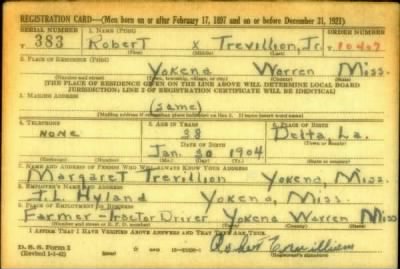 REGISTRATION CARD—(Men born on or after February 17, 1897 and on or before December 31, 1921)
SERIAL NUMBER 1. NAME (Print) ORDER NUMBER
T 383 Robert x Trevillion, Jr. T 10409
(First) (Middle) (Last)
2. PLACE OF RESIDENCE (Print)
Yokena Warren Miss.
(Number and street) (Town, township, village, or city) (County) (State)
[THE PLACE OF RESIDENCE GIVEN ON THE LINE ABOVE WILL DETERMINE LOCAL BOARD
JURISDICTION; LINE 2 OF REGISTRATION CERTIFICATE WILL BE IDENTICAL]
3. MAILING ADDRESS
(same)
4. TELEPHONE 5. AGE IN YEARS 6. PLACE OF BIRTH
none 38 Delta, La.
DATE OF BIRTH (Town or county)
Jan. 30 1904
(Mo.) (Day) (Yr.) (State or country)
7. NAME AND ADDRESS OF PERSON WHO WILL ALWAYS KNOW YOUR ADDRESS
Margaret Trevillion Yokena, Miss.
8. EMPLOYER'S NAME AND ADDRESS
J.L. Hyland Yokena, Miss.
9. PLACE OF EMPLOYMENT OR BUSINESS
Farmer-Tractor Driver Yokena Warren Miss
(Number and street or R. F. D. number) (Town) (County) (State)
I AFFIRM THAT I HAVE VERIFIED ABOVE ANSWERS AND THAT THEY ARE TRUE.
D. S. S. Form 1
(Revised 1-1-42) (over)
(Registrant's signature)